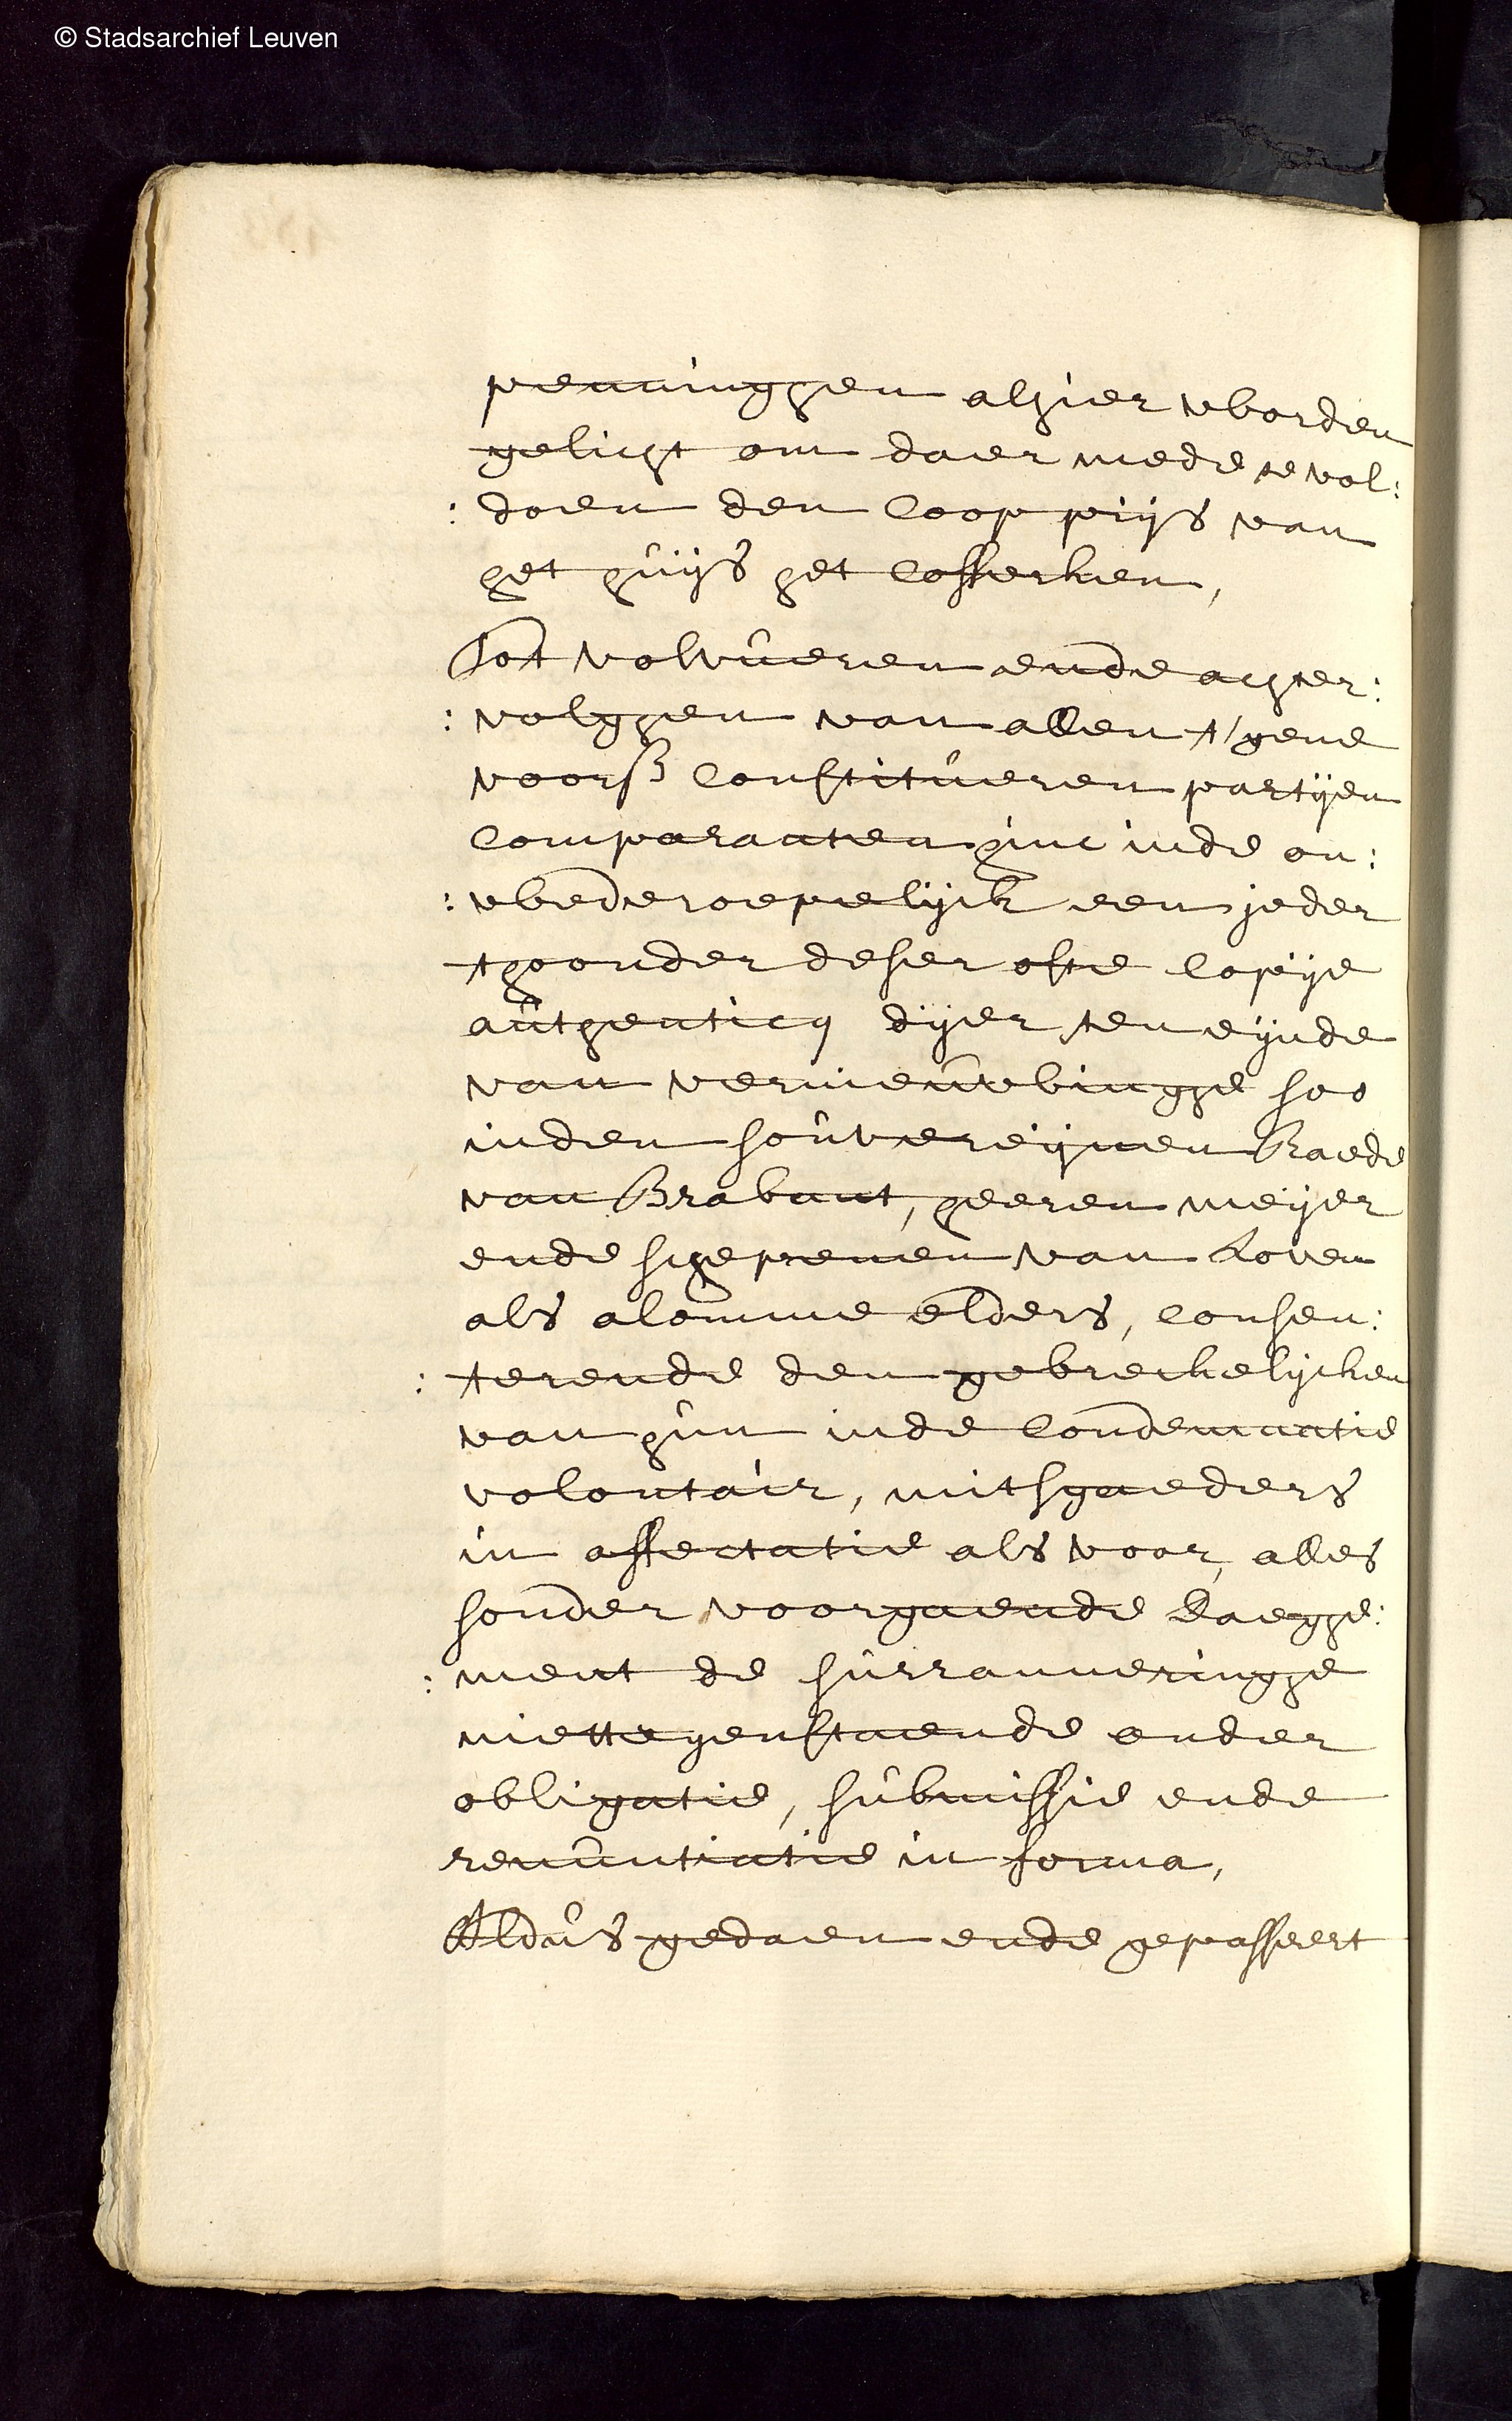 © Stadsarchief Leuven
penningghen alhier worden
gelicht om daer mede te vol:
: doen den coop prijs van
het huijs het cofferken,
Tot volvueren ende achter:
: volghen van allen t'gene
voors constitueren partijen
comparanten hinc inde on:
: wederoepelijck een jeder
thoonder deser ofte copije
authenticq dijer ten eijnde
van vernieuwingghe soo
inden souvereijnen Raede
van Brabant, heeren meijer
ende schepenen van Loven
als alomme elders, consen:
: terende den gebreckelijcken
van hun inde condemnatie
volontair, mitsgaeders
in affectatie als voor, alles
sonder voorgaende daeghe:
: ment de surranneringghe
niettegenstaende onder
obligatie, submissie ende
renuntiatie in forma,
Aldus gedaen ende gepasseert